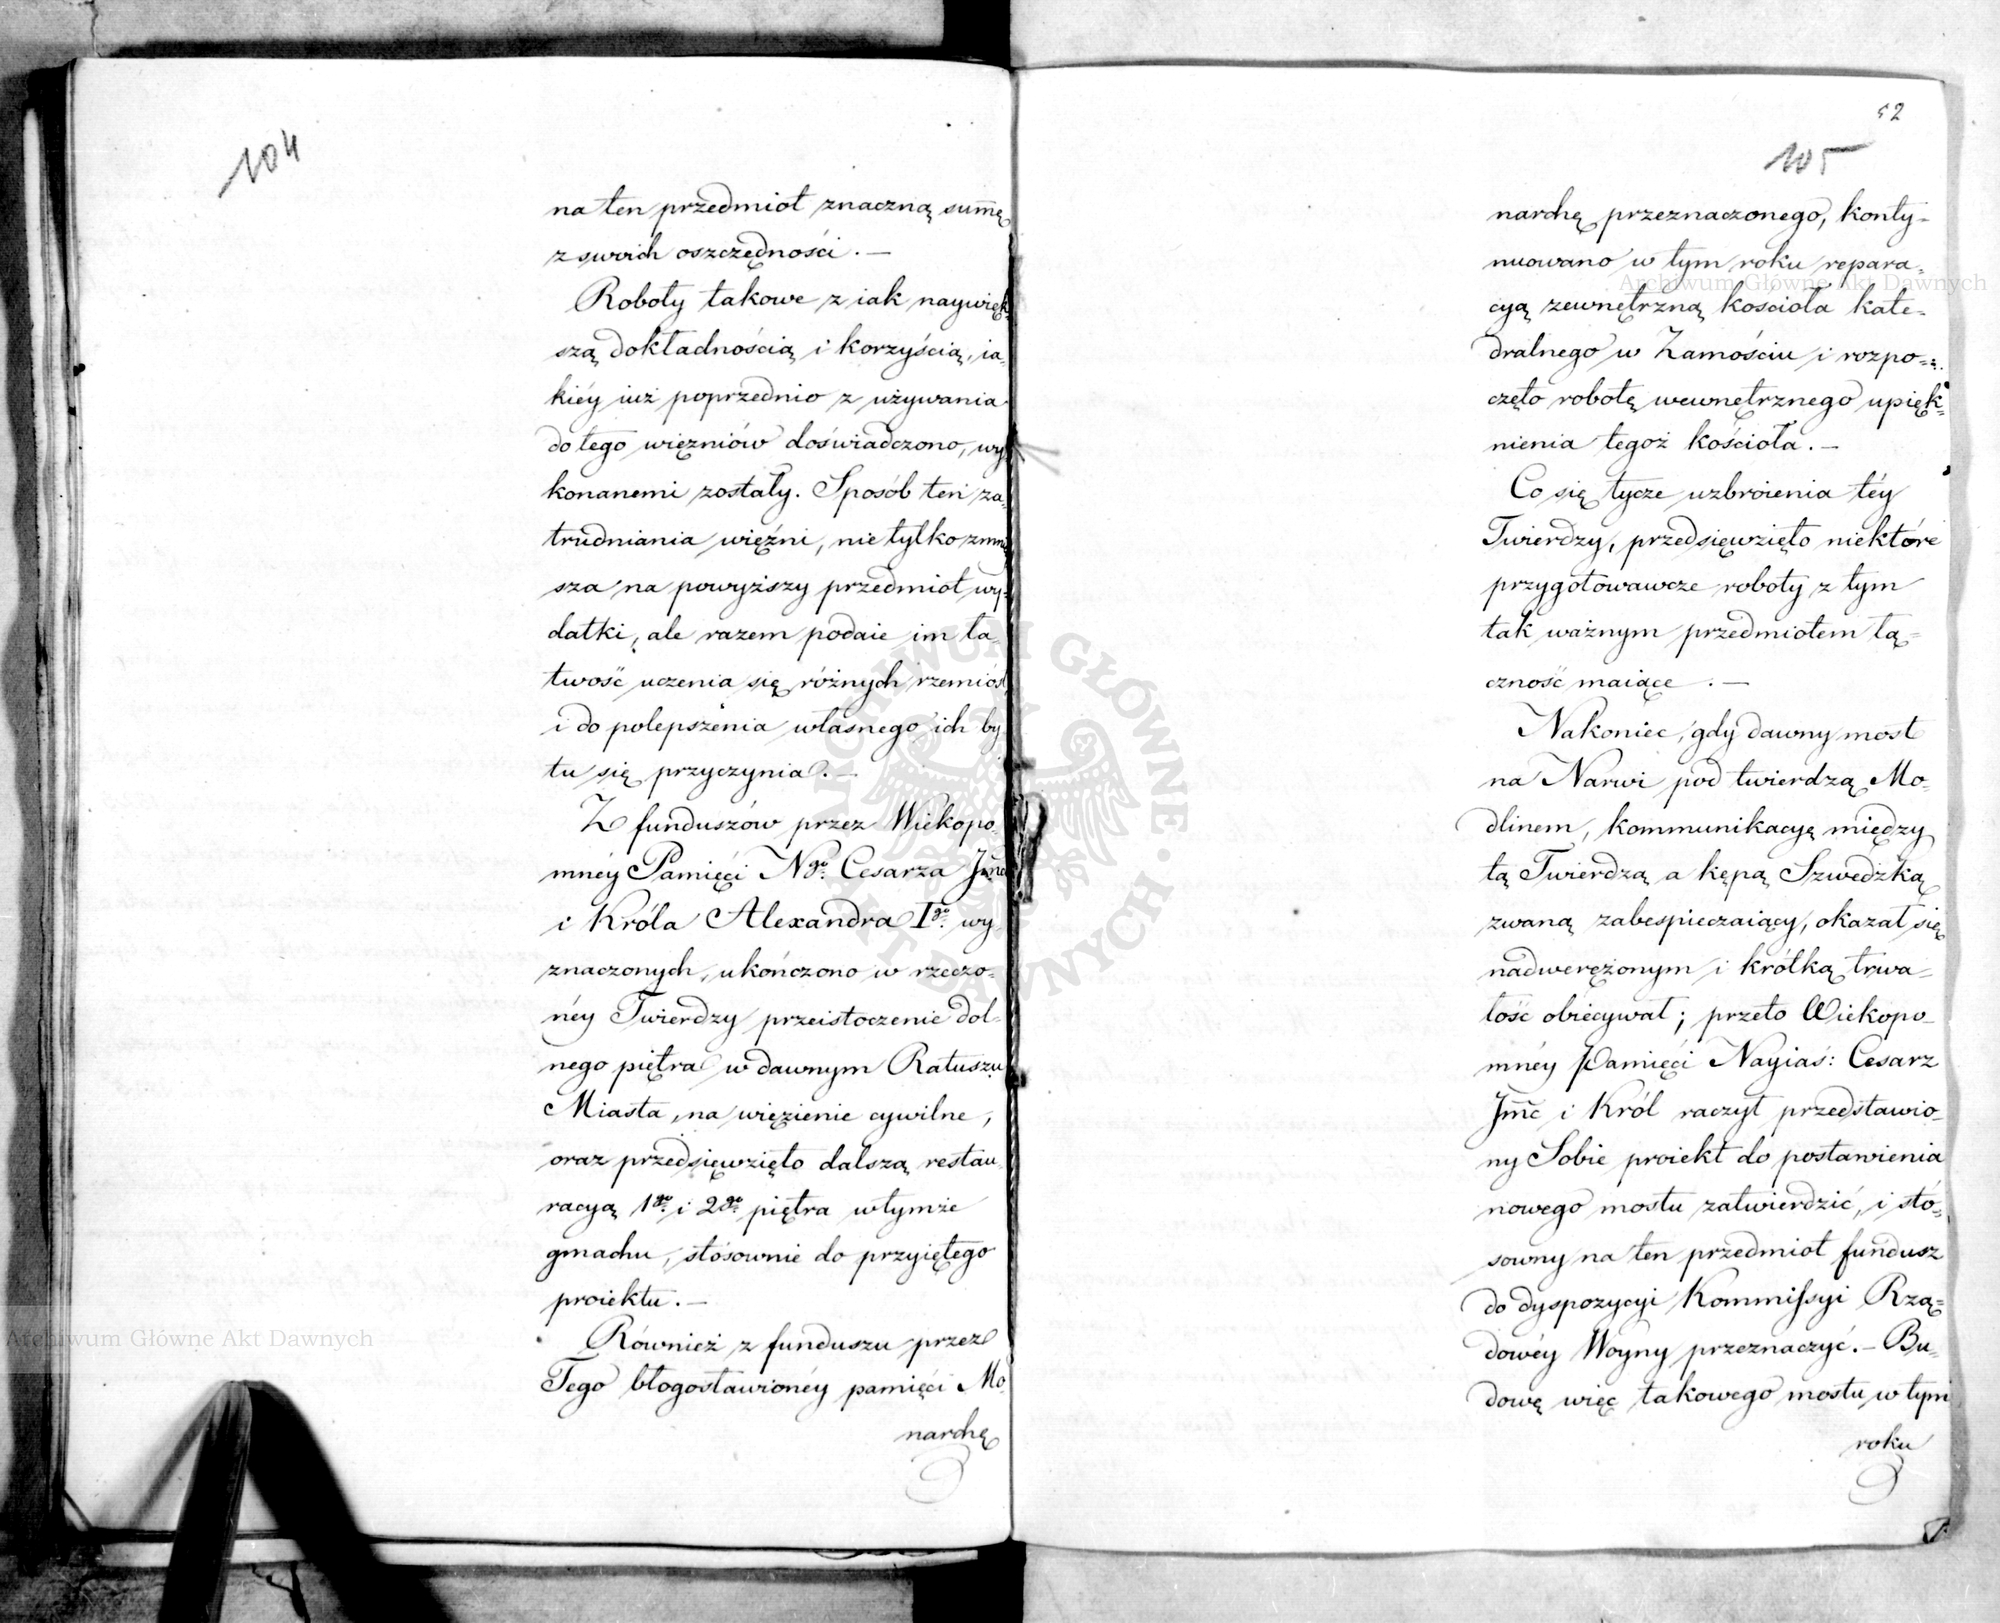 104
na ten przedmiot znaczną summę
z swoich oszczędności. —
Roboty takowe z iak naywięk-
szą dokładnością i korzyścią, ia-
kiéy iuż poprzednio z używania
do tego więzniów doświadczono, wy-
konanemi zostały. Sposób ten za-
trudniania więźni, nie tylko zmniéy-
sza na powyższy przedmiot wy-
datki, ale razem podaie im ła-
twość uczenia się różnych rzemiosł
i do polepszenia własnego ich by-
tu się przyczynia. —
Z funduszów przez Wiekopo-
mnéy Pamięci Ngo. Cesarza Jmci
i Króla Alexandra Igo. wy-
znaczonych, ukończono w rzeczo-
néy Twierdzy przeistoczenie dol-
nego piętra w dawnym Ratuszu
Miasta, na więzienie cywilne,
oraz przedsięwzięto dalszą restau-
racyą 1go. i 2go. piętra w tymże
gmachu, stósownie do przyiętego
proiektu. —
Również z funduszu przez
Tego błogosławionéy pamięci Mo-
narchę
52
105
narchę przeznaczonego, konty-
nuowano w tym roku repara-
cyą zewnętrzną kościoła kate-
dralnego w Zamościu i rozpo-
częto robotę wewnętrznego upięk-
nienia tegoż kościoła. —
Co się tycze uzbroienia téy
Twierdzy, przedsięwzięto niektóre
przygotowawcze roboty z tym
tak ważnym przedmiotem łą-
czność maiące. —
Nakoniec, gdy dawny most
na Narwi pod twierdzą Mo-
dlinem, kommunikacyę między
tą Twierdzą a kępą Szwedzką
zwaną zabespieczaiący, okazał się
nadwerężonym i krótką trwa-
łość obiecywał; przeto Wiekopo-
mnéy Pamięci Nayiaś: Cesarz
Jmć i Król raczył przedstawio-
ny Sobie proiekt do postawienia
nowego mostu zatwierdzić, i stó-
sowny na ten przedmiot fundusz
do dyspozycyi Kommissyi Rzą-
dowéy Woyny przeznaczyć. — Bu-
dowę więc takowego mostu w tym
roku
Archiwum Główne Akt Dawnych
Archiwum Główne Akt Dawnych
ARCHIWUM GŁÓWNE AKT DAWNYCH